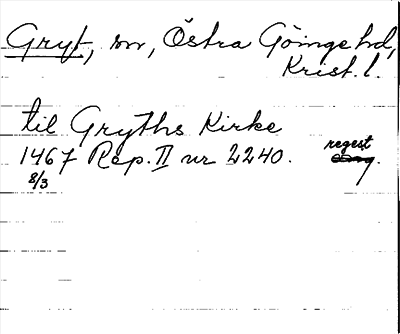 Gryt, sn, Östra Göinge hd,
Krist. l.
til Gryths Kirke
1467 Rep. II nr 2240. regest
8/3